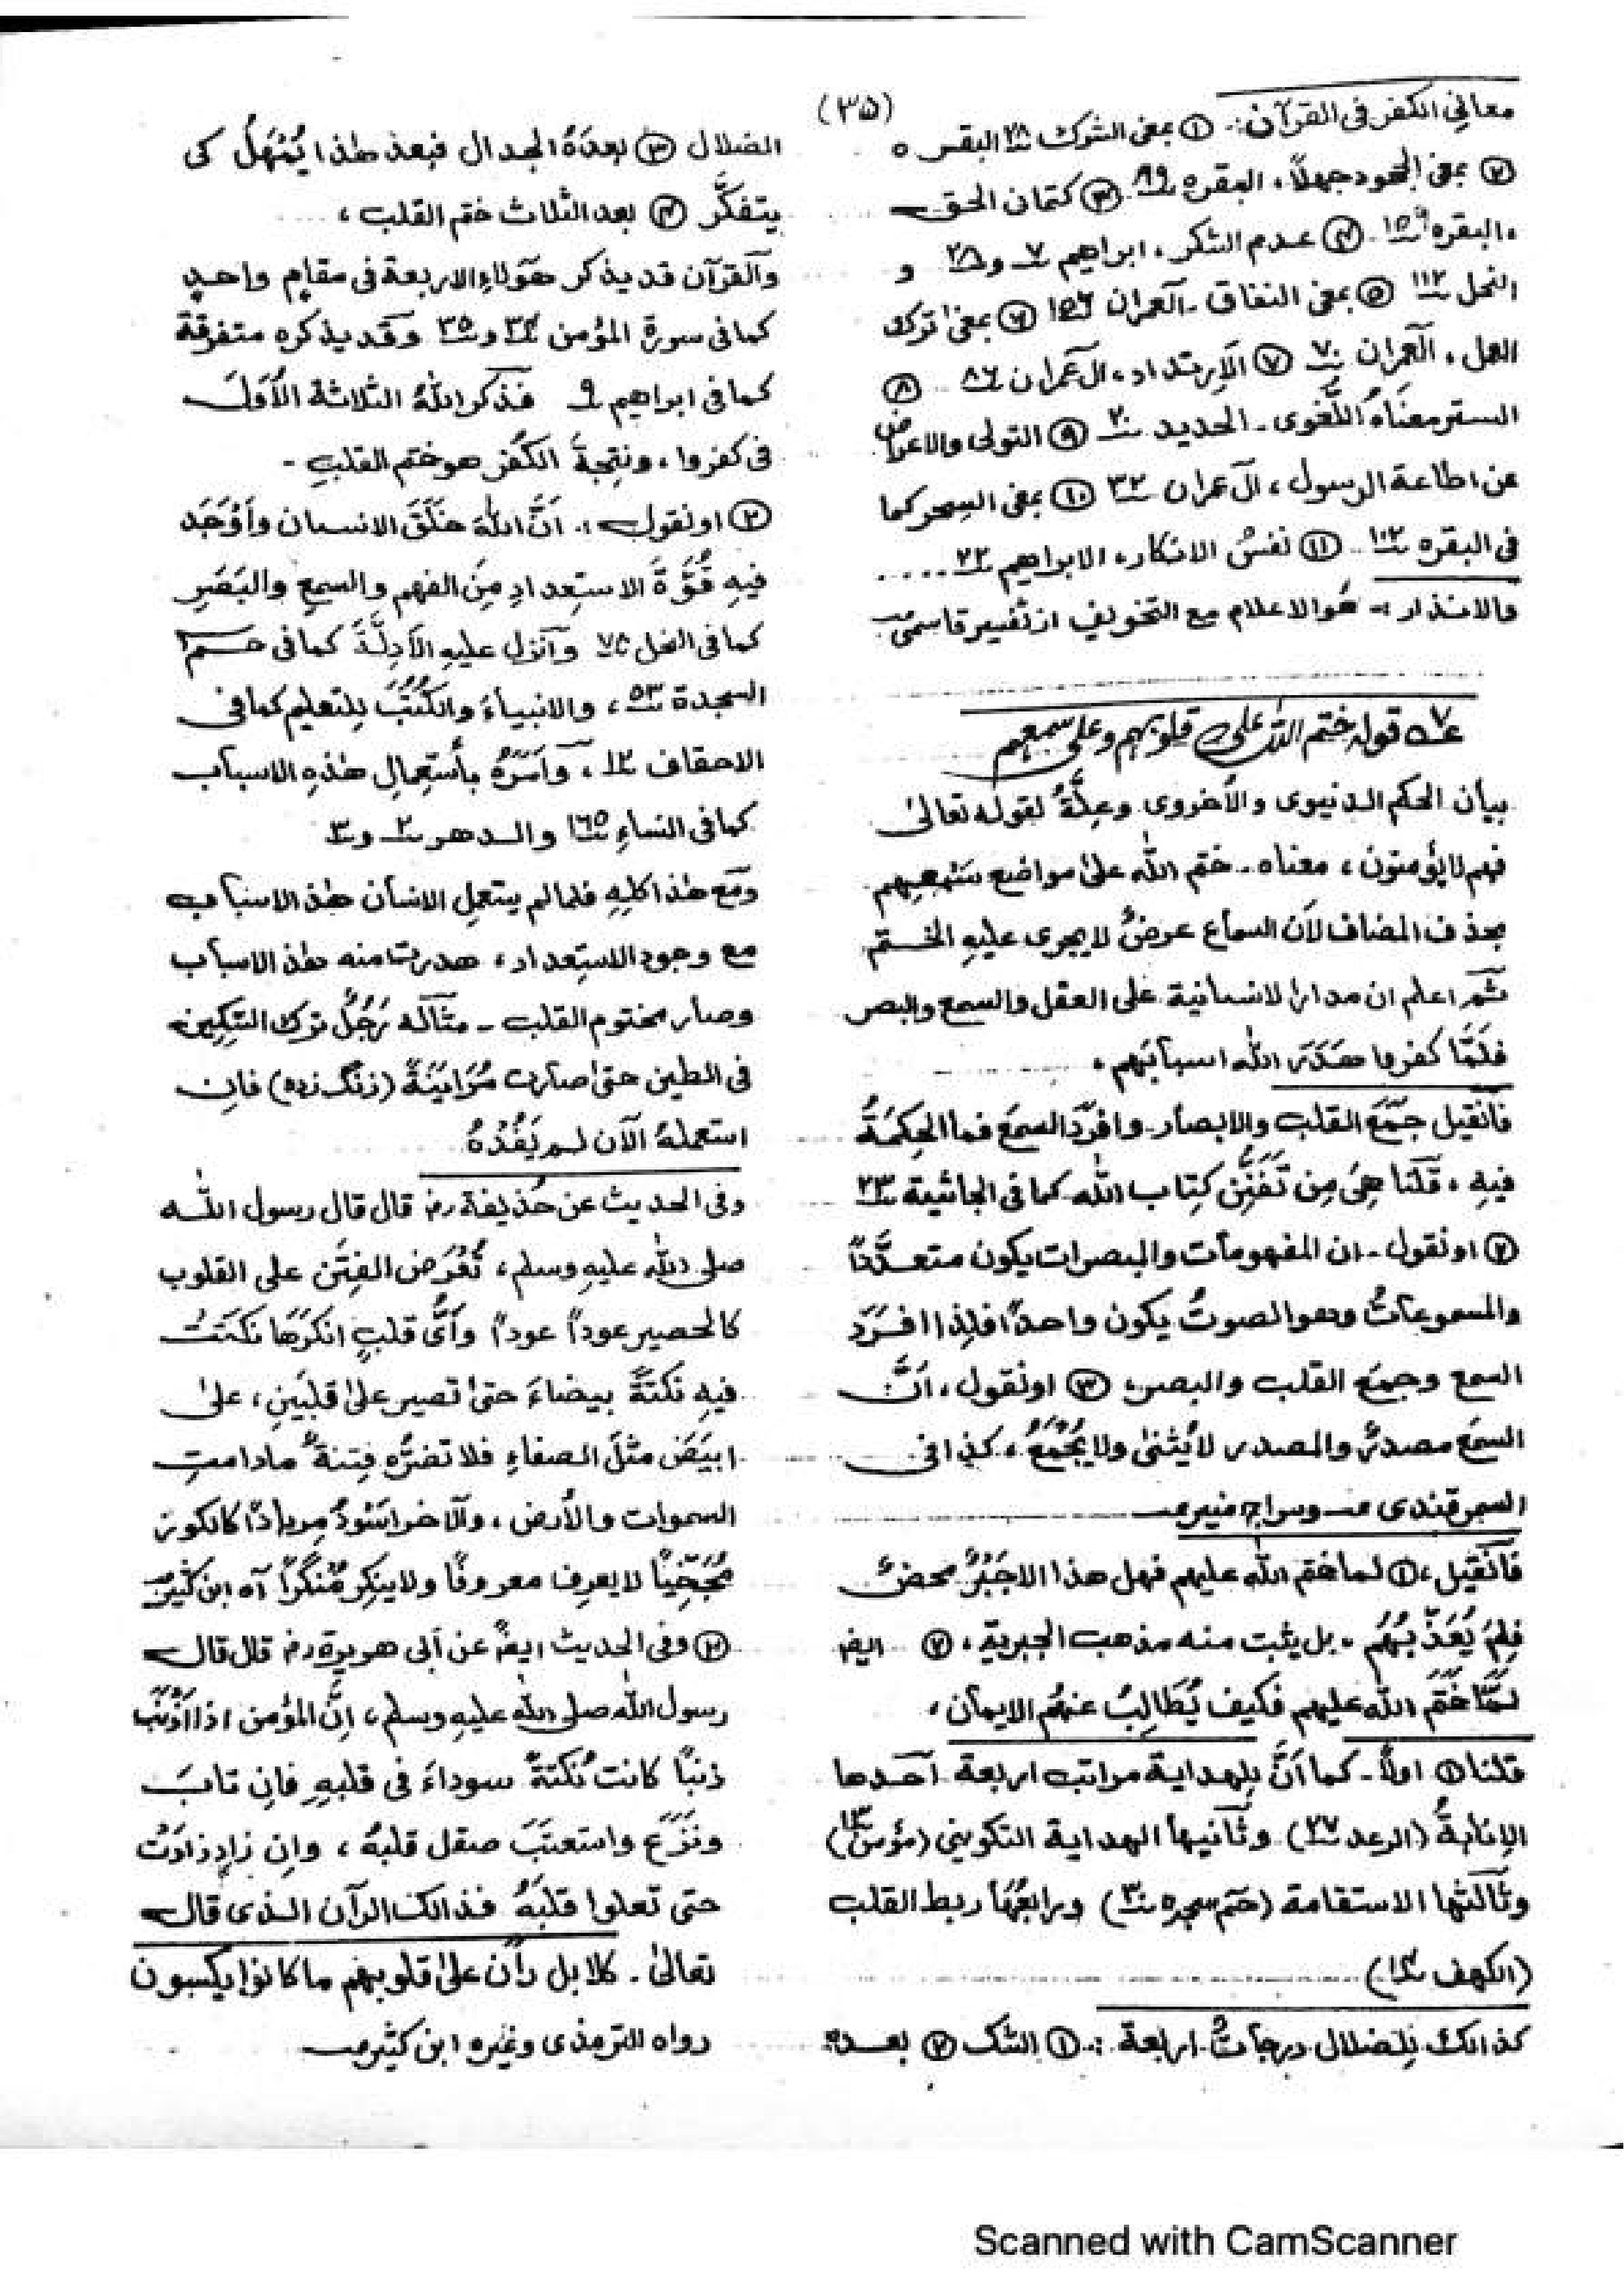 (٣٥)
معاني الكفر في القرآن :- ① بمعنى الشرك ٢٨ البقره
② بمعنى الجحود جهلاً، البقره ٨٩ ③ كتمان الحق
، البقره ١٥٩ ④ عدم الشكر، ابراهيم ٧ و ٢٨ و
النحل ١١٢ ⑤ بمعنى النفاق - آلعمران ١٥٦ ⑥ بمعنىٰ ترك
العمل، آلعمران ٧٠ ⑦ الاِرتداد، آل عمران ٨٦ ⑧
الستر معنَاهُ اللُّغوى - الحديد ٢٠ ⑨ التولى والاعراض
عن اطاعة الرسول، آل عمران ٣٢ ⑩ بمعنى السِحر كما
فى البقره ١٠٢ ⑪ نفسُ الانكار، الابراهيم ٢٢ .....
والانذار :- هُو الاعلام مع التخويفِ از تفسير قاسمى
٧ قوله ختم اللّٰه على قلوبهم وعلى سمعهم
بيان الحكم الدنيوى والأخروى وعِلَّةٌ لقوله تعالىٰ
فهم لا يؤمنون، معناه - ختم اللّٰه علىٰ مواضع سَمْعِهِم
بحذف المضاف لأن السماع عرضٌ لا يجرى عليهِ الختم
ثمّ اعلم ان مدار الانسانية على العقل والسمع والبصر
فلَمَّا كفروا هَدَرَ اللّٰه اسبابَهم ،
فأنقيل جَمَعَ القلب والابصار - وافرَد السمعَ فما الحِكمَةُ
فيهِ، قَلنا هِىَ مِن تَفَنُّنِ كِتاب اللّٰه كما فى الجاثية ٢٣
② اونقول - ان المفهومات والمبصرات يكون متعدَّداً
والمسموعاتُ وهو الصوتُ يكون واحداً فلِذا افرَدَ
السمع وجمعَ القلب والبصر، ③ اونقول، أنَّ
السمَع مصدرٌ والمصدر لا يُثنىٰ ولا يُجْمَعُ، كذا فى
السمرقندى وسراج منير
فأنقيل، ① لما ختم اللّٰه عليهم فهل هذا الاجَبْرٌ محضٌ
فلِمَ يُعَذِّبُهُم ، بل يثبت منه مذهب الجبرية، ② ايضا
لمَّا خَتَمَ اللّٰه عليهم فكيف يُطَالِبُ عنهُم الايمان ،
قلنا ① اولاً - كما أنَّ لِلهداية مراتب اربعة آحَدها
الاِنابةُ (الرعد ٢٧) وثَانيها الهداية التكوينى (مؤمن ١٣)
وثَالثها الاستقامة (حٰمٓ سجره ٣٠) ورابعُهَا ربط القلب
(الكهف ١٤)
كذالك لِلضلال درجاتٌ اربعة :- ① الشك ② بعده
الضلال ③ بعدَهُ الجدال فبعد هٰذا يُمْهَلُ كى
يتفكَّر ④ بعد الثلاث ختم القلب ،
وآلقرآن قد يذكر هٰؤلاءِ الاربعة فى مقامٍ واحدٍ
كما فى سورة المؤمن ٣٤ و ٣٥ وقد يذكره متفرقة
كما فى ابراهيم ٩ فذكر اللّٰهُ الثلاثة الأُوَلَ
فى كفروا، ونتِجةُ الكُفر هو ختم القلبِ -
② اونقول :- اَنَّ اللّٰهَ خلَقَ الانسان وأوْجَدَ
فيهِ قُوَّةَ الاستِعدادِ مِنَ الفهمِ والسمعِ والبَصَرِ
كما فى النحل ٧٨ وآنزل عليهِ الأدِلَّةَ كما فى حٰم
السجدة ٥٣، والانبياءَ والكُتُبَ لِلتعليم كما فى
الاحقاف ١٢، وآمَرَهُ بأستِعمالِ هٰذهِ الاسباب
كما فى النساءِ ١٦٥ والدهر ٢ و ٣
ومَع هٰذا كلِهِ فلما لم يستعملِ الانسان هٰذ الاسباب
مع وجود الاستِعداد، هدرت منه هٰذ الاسباب
وصار مختوم القلب - مثَاله رَجُلٌ ترك السِّكِين
فى الطين حتىٰ صارت مُرَايَنَةً (زنگ زده) فاِن
استعملهُ الآن لم يَفُدْهُ
وفى الحديث عن حُذيفة رض قال قال رسول اللّٰه
صلى اللّٰه عليهِ وسلم، تُعْرَض الفِتَن على القلوب
كالحصير عوداً عوداً وأىُّ قلبٍ انكرَها نكتَتْ
فيهِ نكتَةٌ بيضاءَ حتىٰ تصير علىٰ قلبَينِ، علىٰ
ابيَضَ مثلَ الصفاءِ فلا تضرُّه فِتنةٌ مادامتِ
السمٰوات والأرض، وآلآخر اسْوَدُ مِرباداً كالكوز
مُجَخِّياً لا يعرِف معروفًا ولا ينكِر مُنكراً آه ابن كثير
② وفى الحديث ايضاً عن أبى هريرة رض قال قال
رسول اللّٰه صلى اللّٰه عليهِ وسلم، اِنَّ المؤمن اذا اَذْنَبَ
ذنبًا كانت نُكتةٌ سوداءَ فى قلبِهِ فاِن تابَ
ونَزَعَ واستعتَبَ صقل قلبهُ، واِن زاد زادَتْ
حتى تعلوا قلبَهُ فذالك الرآن الذى قال
تعالىٰ - كلا بل رأن علىٰ قلوبهم ما كانوا يكسبون
رواه الترمذى وغيره ابن كثير
Scanned with CamScanner